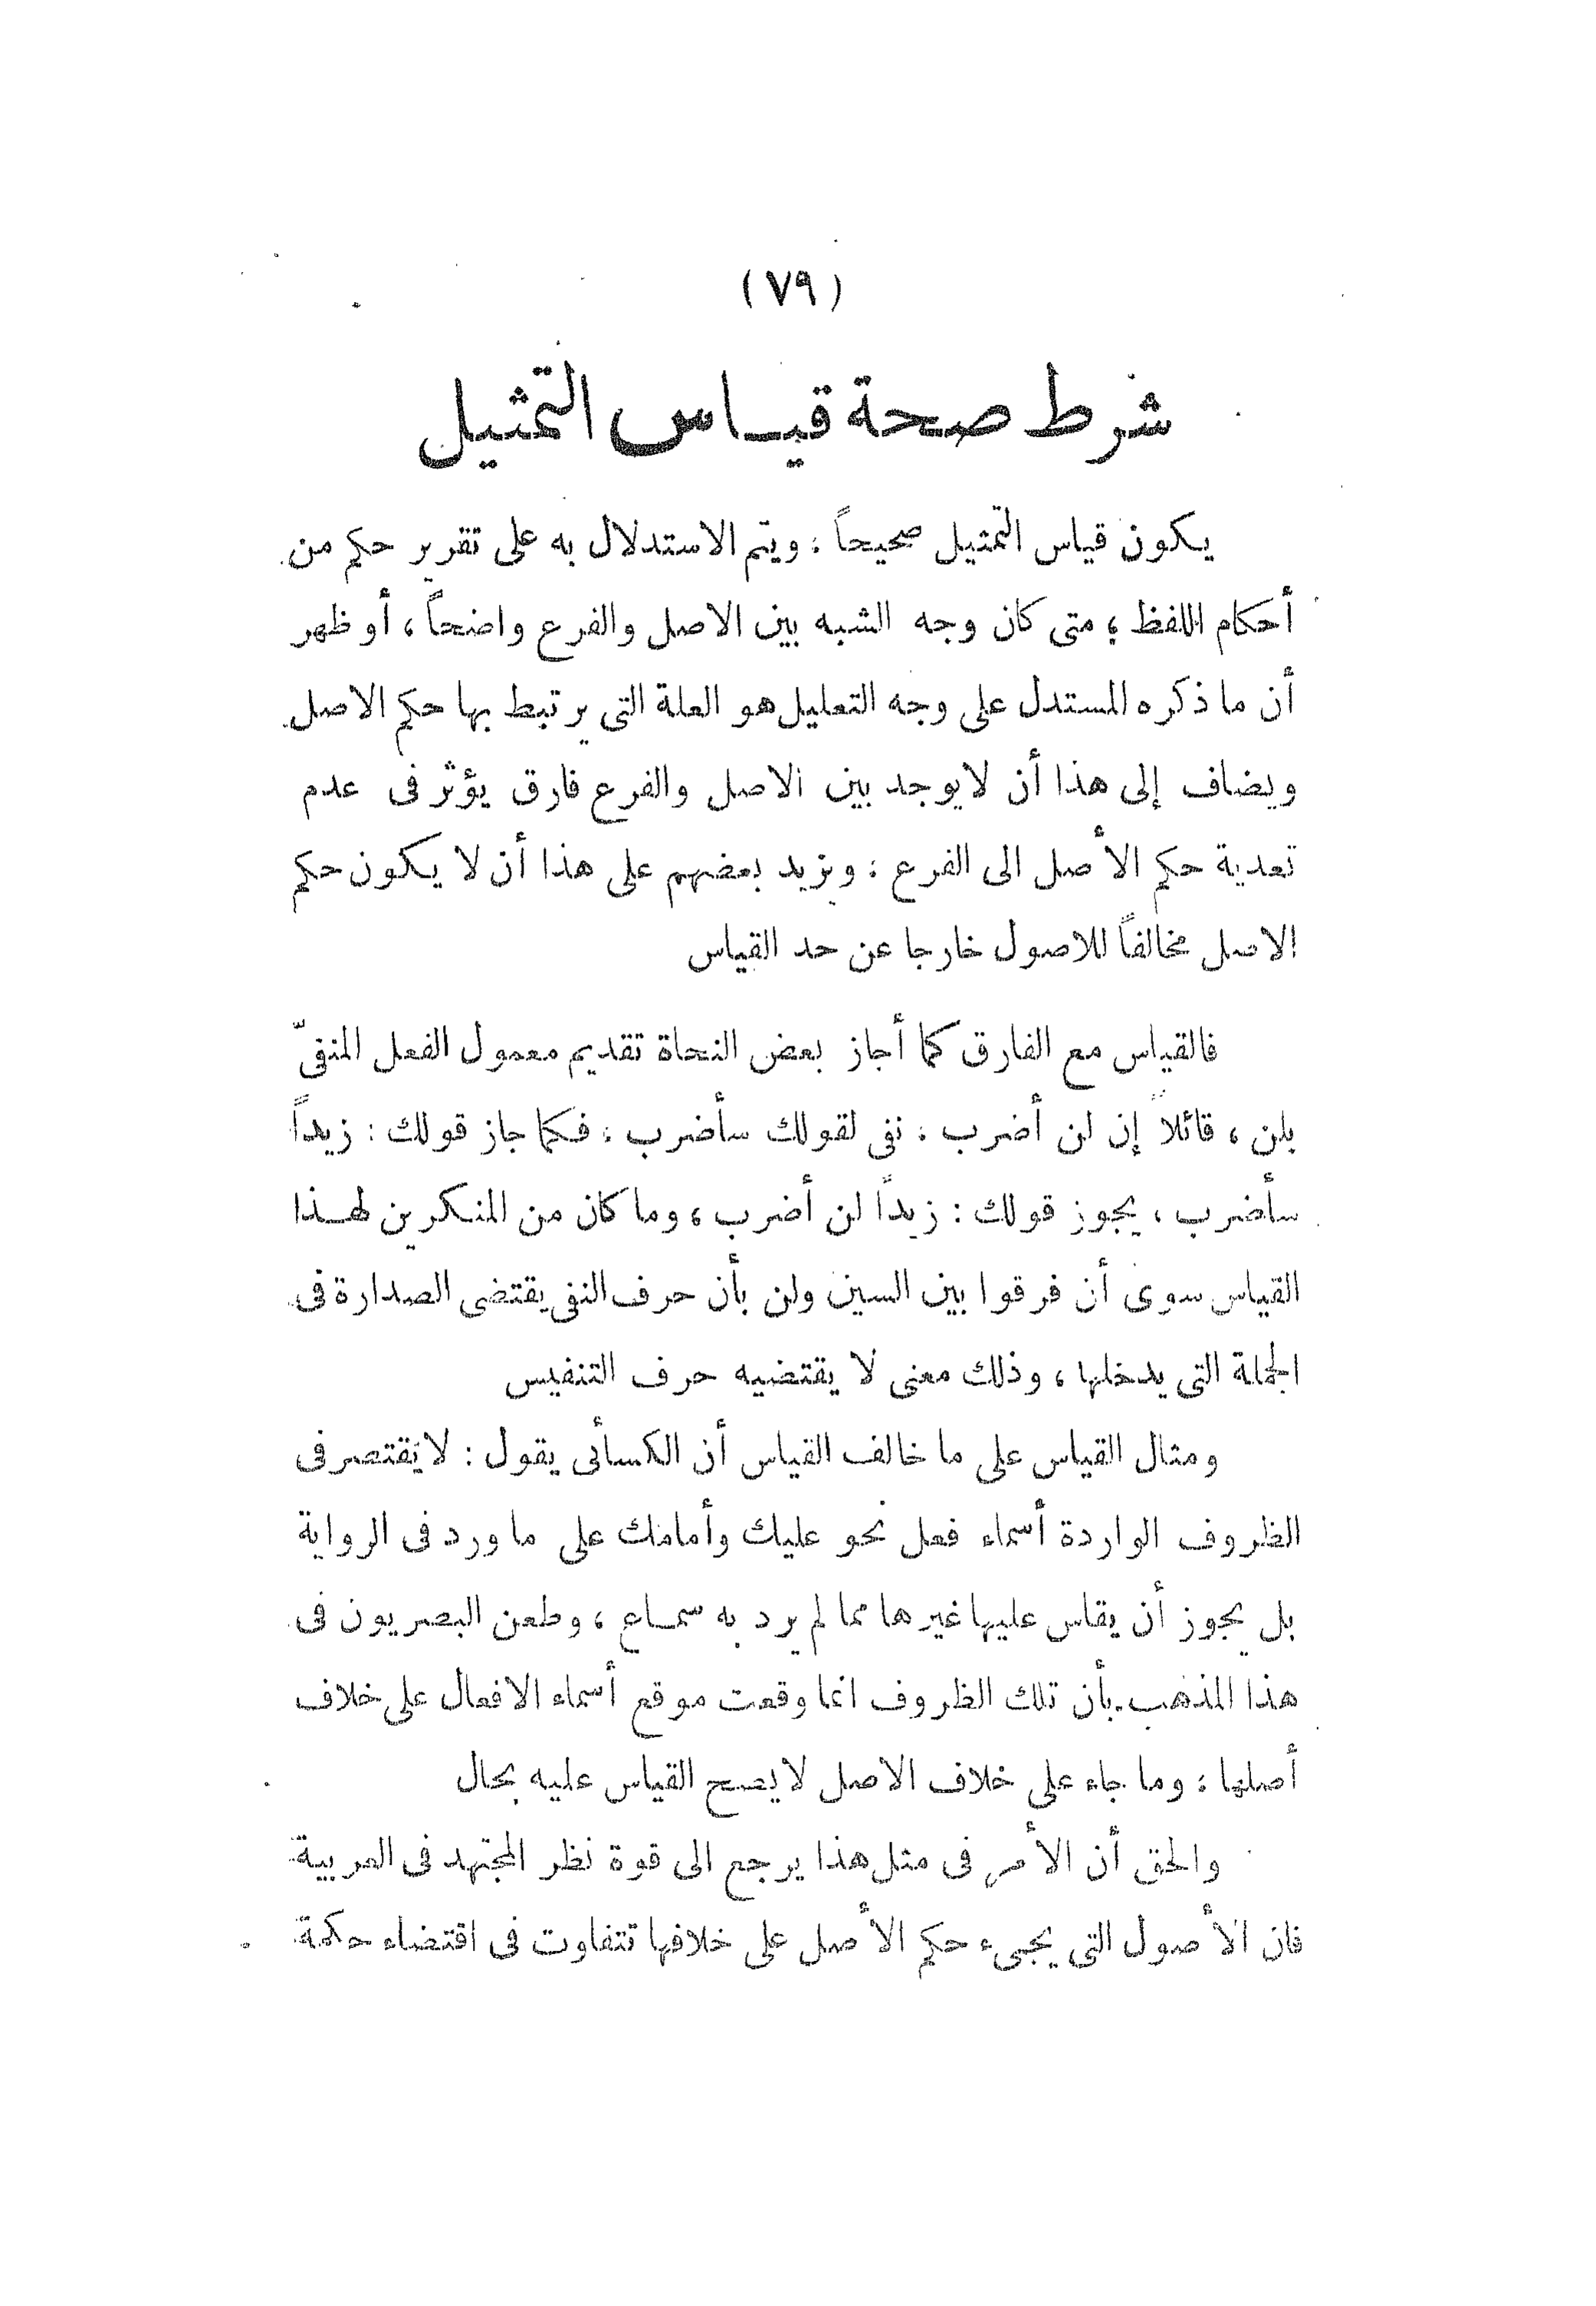 (٧٩)
شرط صحة قياس التمثيل
يكون قياس التمثيل صحيحاً ؛ ويتم الاستدلال به على تقرير حكم من
أحكام اللفظ ؛ متى كان وجه الشبه بين الاصل والفرع واضحاً ، أو ظهر
أن ما ذكره المستدل على وجه التعليل هو العلة التى يرتبط بها حكم الاصل
ويضاف إلى هذا أن لا يوجد بين الاصل والفرع فارق يؤثر فى عدم
تعدية حكم الأصل الى الفرع ؛ ويزيد بعضهم على هذا أن لا يكون حكم
الاصل مخالفاً للاصول خارجا عن حد القياس
فالقياس مع الفارق كما أجاز بعض النحاة تقديم معمول الفعل المنفىّ
بلن ، قائلاً إن لن أضرب ؛ نفى لقولك سأضرب ؛ فكما جاز قولك : زيداً
سأضرب ، يجوز قولك : زيداً لن أضرب ، وما كان من المنكرين لهذا
القياس سوى أن فرقوا بين السين ولن بأن حرف النفى يقتضى الصدارة فى
الجملة التى يدخلها ، وذلك معنى لا يقتضيه حرف التنفيس
ومثال القياس على ما خالف القياس أن الكسأئى يقول : لا يَقتصر فى
الظروف الواردة أسماء فعل نحو عليك وأمامك على ما ورد فى الرواية
بل يجوز أن يقاس عليها غيرها مما لم يرد به سماع ، وطعن البصريون فى
هذا المذهب بأن تلك الظروف انما وقعت موقع أسماء الافعال على خلاف
أصلها ؛ وما جاء على خلاف الاصل لا يصح القياس عليه بحال
والحق أن الأمر فى مثل هذا يرجع الى قوة نظر المجتهد فى العربية
فان الأصول التى يجىء حكم الأصل على خلافها تتفاوت فى اقتضاء حكمة